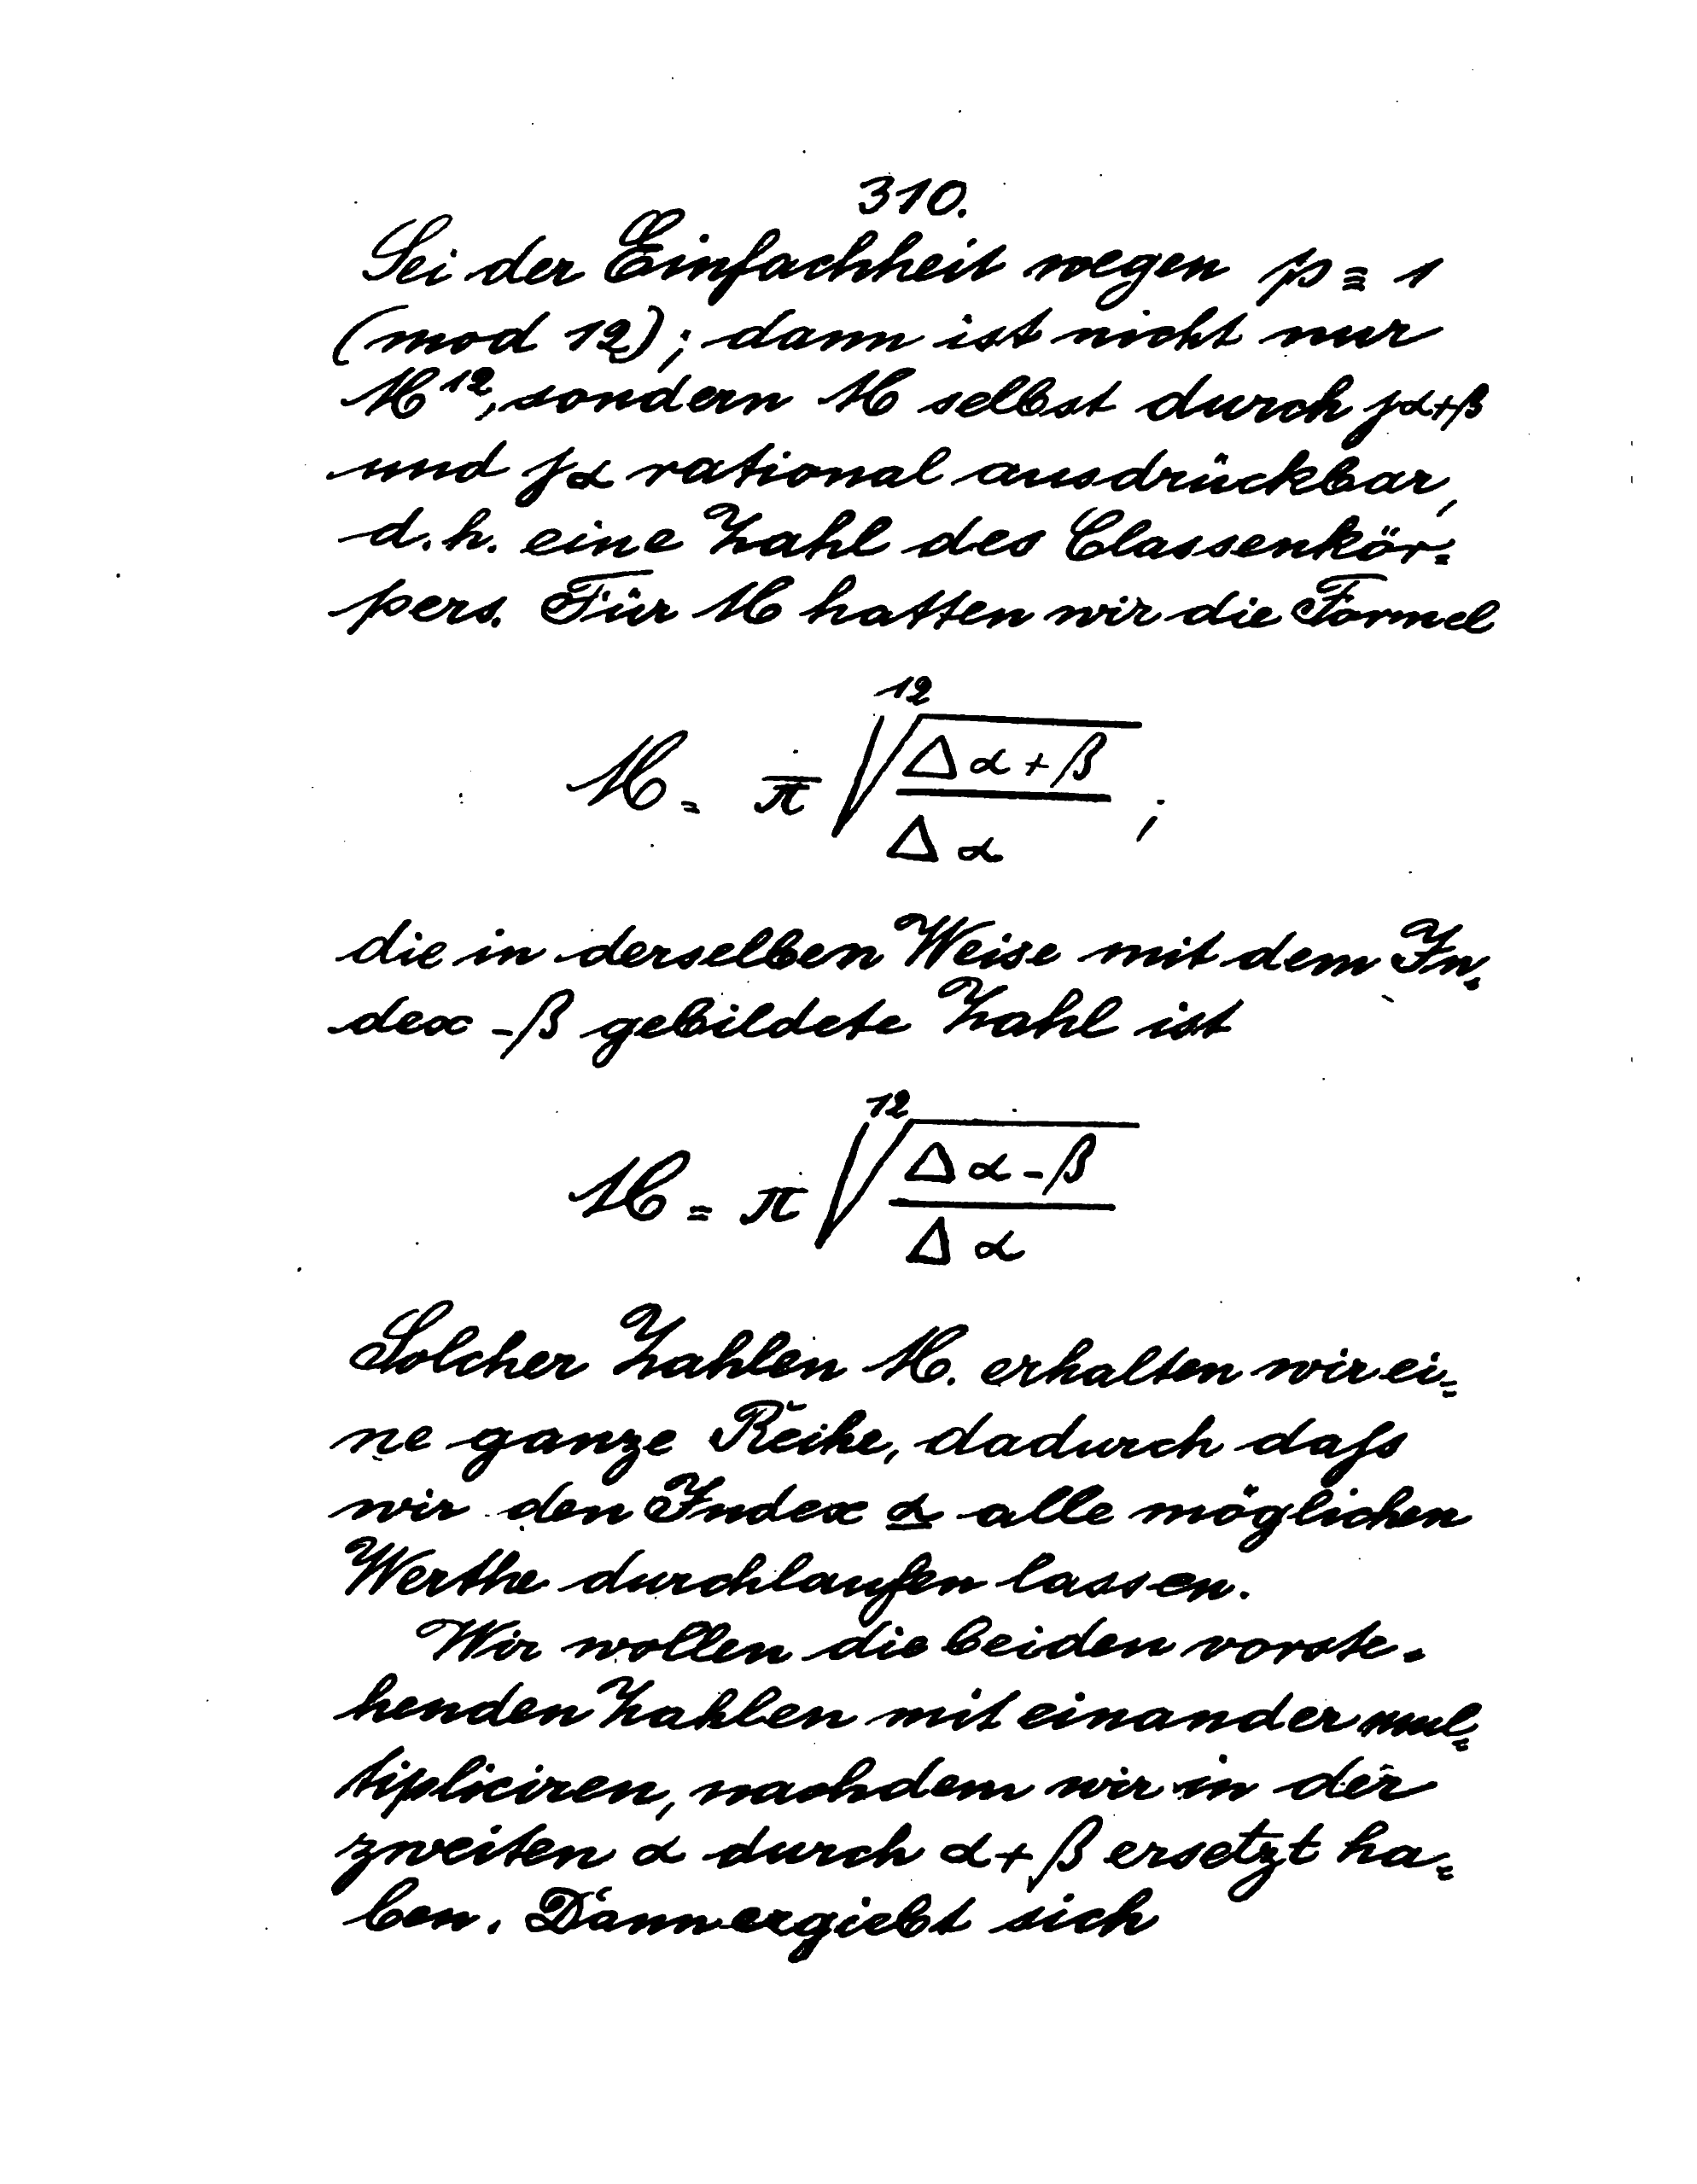 310.
Sei der Einfachheit wegen p ≡ 1
(mod 12); dann ist nicht nur
M¹², sondern M selbst durch jα+β
und jα rational ausdrückbar,
d.h. eine Zahl des Classenkör=
pers. Für M hatten wir die Formel
M = π̅ ¹²√(Δα+β / Δα) ;
die in derselben Weise mit dem In=
dex -β gebildete Zahl ist
M = π ¹²√(Δα-β / Δα)
Solcher Zahlen M. erhalten wir ei=
ne ganze Reihe, dadurch daſs
wir den Index α alle möglichen
Werthe durchlaufen lassen.
Wir wollen die beiden vorste=
henden Zahlen mit einander mul=
tipliciren, nachdem wir in der
zweiten α durch α+β ersetzt ha=
ben. Dann ergiebt sich